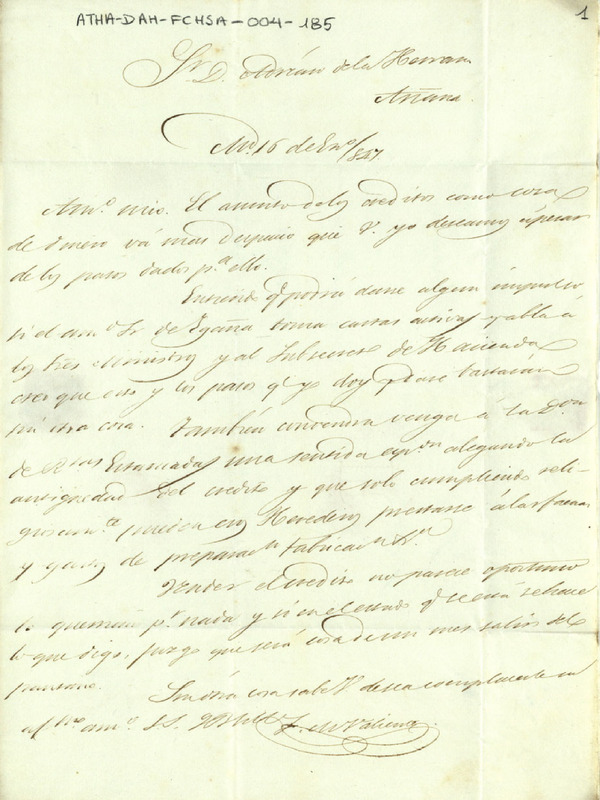 ATHA-DAH-FCHSA-004-185
1
Sr. D. Adrián de la Herran
Añana.
Md. 16 de Eno/847.
Amo. mio. El asunto de los creditos como cosa
de dinero vá mas despacio que V. yo deseamos á pesar
de los pasos dados pa. ello.
Entiendo q podrá darse algun impulso
si el amo. Sr. de Egaña toma cartas activas y abla á
los tres Ministros y al Subsecreto. de Hacienda
creo que eso y los pasos q yo doy bastarán
sin otra cosa. Tambien convendra venga á la Don.
de Rtas Estancadas una sentida espon. alegando la
antiguedad del credito y que solo cumpliendo reli-
giosamte. pueden los Herederos prestarse á las faenas
y gastos de preparacn. fabricacn. &a.
Vender el credito no parece oportuno
lo quemarian pr. nada y si en el estado q se está se hace
lo que digo, juzgo que será cosa de un mes salir del
pantano.
Sin otra cosa sabe V. desea complacerle su
afmo. amo. S. S. Q B S M
F. M. Valiente